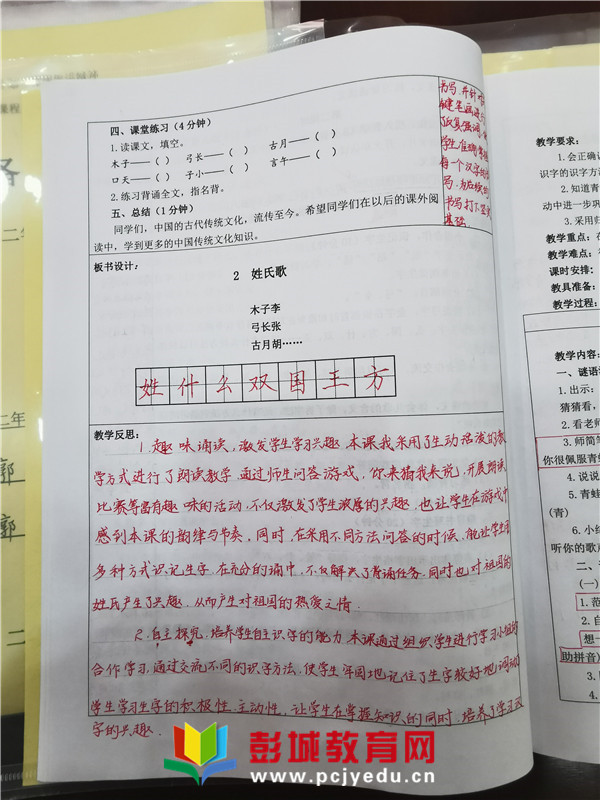 四、课堂练习(4分钟)
1.读课文,填空。
木子——( )  弓长——( )  古月——( )
口天——( )  子小——( )  言午——( )
2.练习背诵全文,指名背。
五、总结(1分钟)
同学们,中国的古代传统文化,流传至今。希望同学们在以后的课外阅
读中,学到更多的中国传统文化知识。
书写,并针
反复强调,
学生准确掌握
每一个汉字的
书写打下坚实
基础.
板书设计:
2 姓氏歌
木子李
弓长张
古月胡……
姓什么双国王方
教学反思:
1.趣味诵读,激发学生学习兴趣.本课我采用了生动活泼的教
学方式进行了朗读教学.通过师生问答游戏,你来猜我来说,开展朗读
比赛等富有趣味的活动,不仅激发了学生浓厚的兴趣,也让学生在游戏中
感到本课的韵律与节奏,同时,在采用不同方法问答的时候,能让学生用
多种方式识记生字.在充分的诵中,不仅解决了背诵任务,同时也对祖国的
姓氏产生了兴趣.从而产生对祖国的热爱之情.
2.自主探究,培养学生自主识字的能力.本课通过组织学生进行学习小组的
合作学习,通过交流不同的识字方法,使学生牢固地记住了生字较好地调动
学生学习生字的积极性.主动性,让学生在掌握知识的同时,培养了学习汉
字的兴趣.
教学要求:
1.会正确认
识字的识字方法
2.知道青
动中进一步巩
3.采用归
教学重点:在
教学难点:
课时安排:
教具准备:
教学过程:
教学内容:
一、谜语
1.出示:
猜猜看,
2.看老师
3.师简笔
你很佩服青蛙
4.说说
5.青蛙
(青)
6.小结
听你的歌
二、
(一)
1.范
2.自
想一
助拼音)
3.
课程
二年
二年
郭
郭
彭城教育网
www.pcjyedu.cn